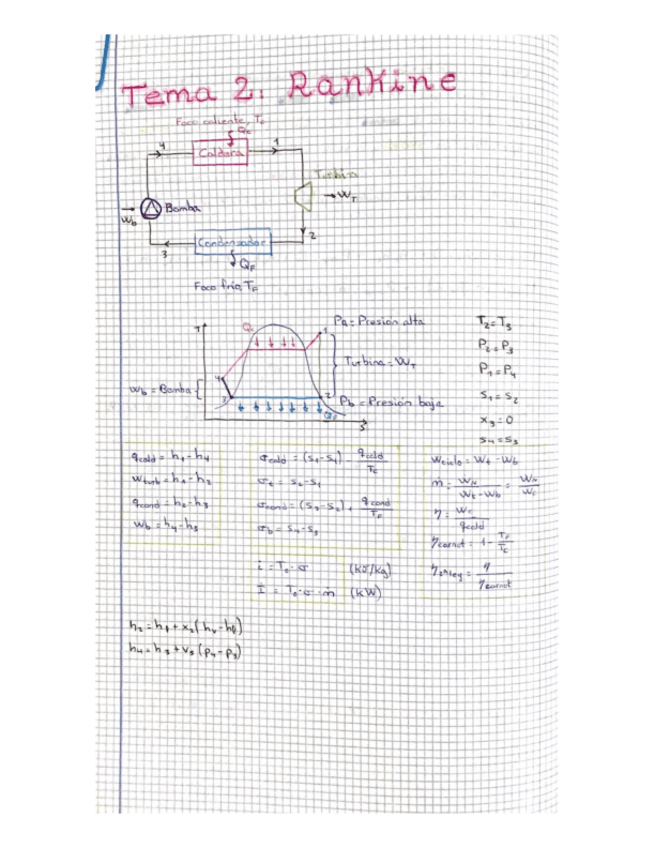 Tema 2. Rankine
Foco caliente, Tc
Qc
4
Caldera
1
Turbina
→ WT
Wb
Bomba
2
Condensador
3
QF
Foco frío TF
T
Qc
1
Pa = Presión alta
Turbina = WT
4
Wb = Bomba
3
2
Pb = Presión baja
QF
S
T2 = T3
P2 = P3
P1 = P4
S1 = S2
x3 = 0
S4 = S3
qcald = h1 - h4
Wturb = h1 - h2
qcond = h2 - h3
Wb = h4 - h3
σcald = (S1 - S4) - qcald / Tc
σt = S2 - S1
σcond = (S3 - S2) + qcond / TF
σb = S4 - S3
Wciclo = Wt - Wb
ṁ = WN / Wt - Wb = WN / Wc
η = Wc / qcald
ηcarnot = 1 - TF / Tc
η2ªley = η / ηcarnot
i = To · σ (kJ/kg)
İ = To · σ · ṁ (kW)
h2 = hf + x2 (hv - hf)
h4 = h3 + v3 (P4 - P3)